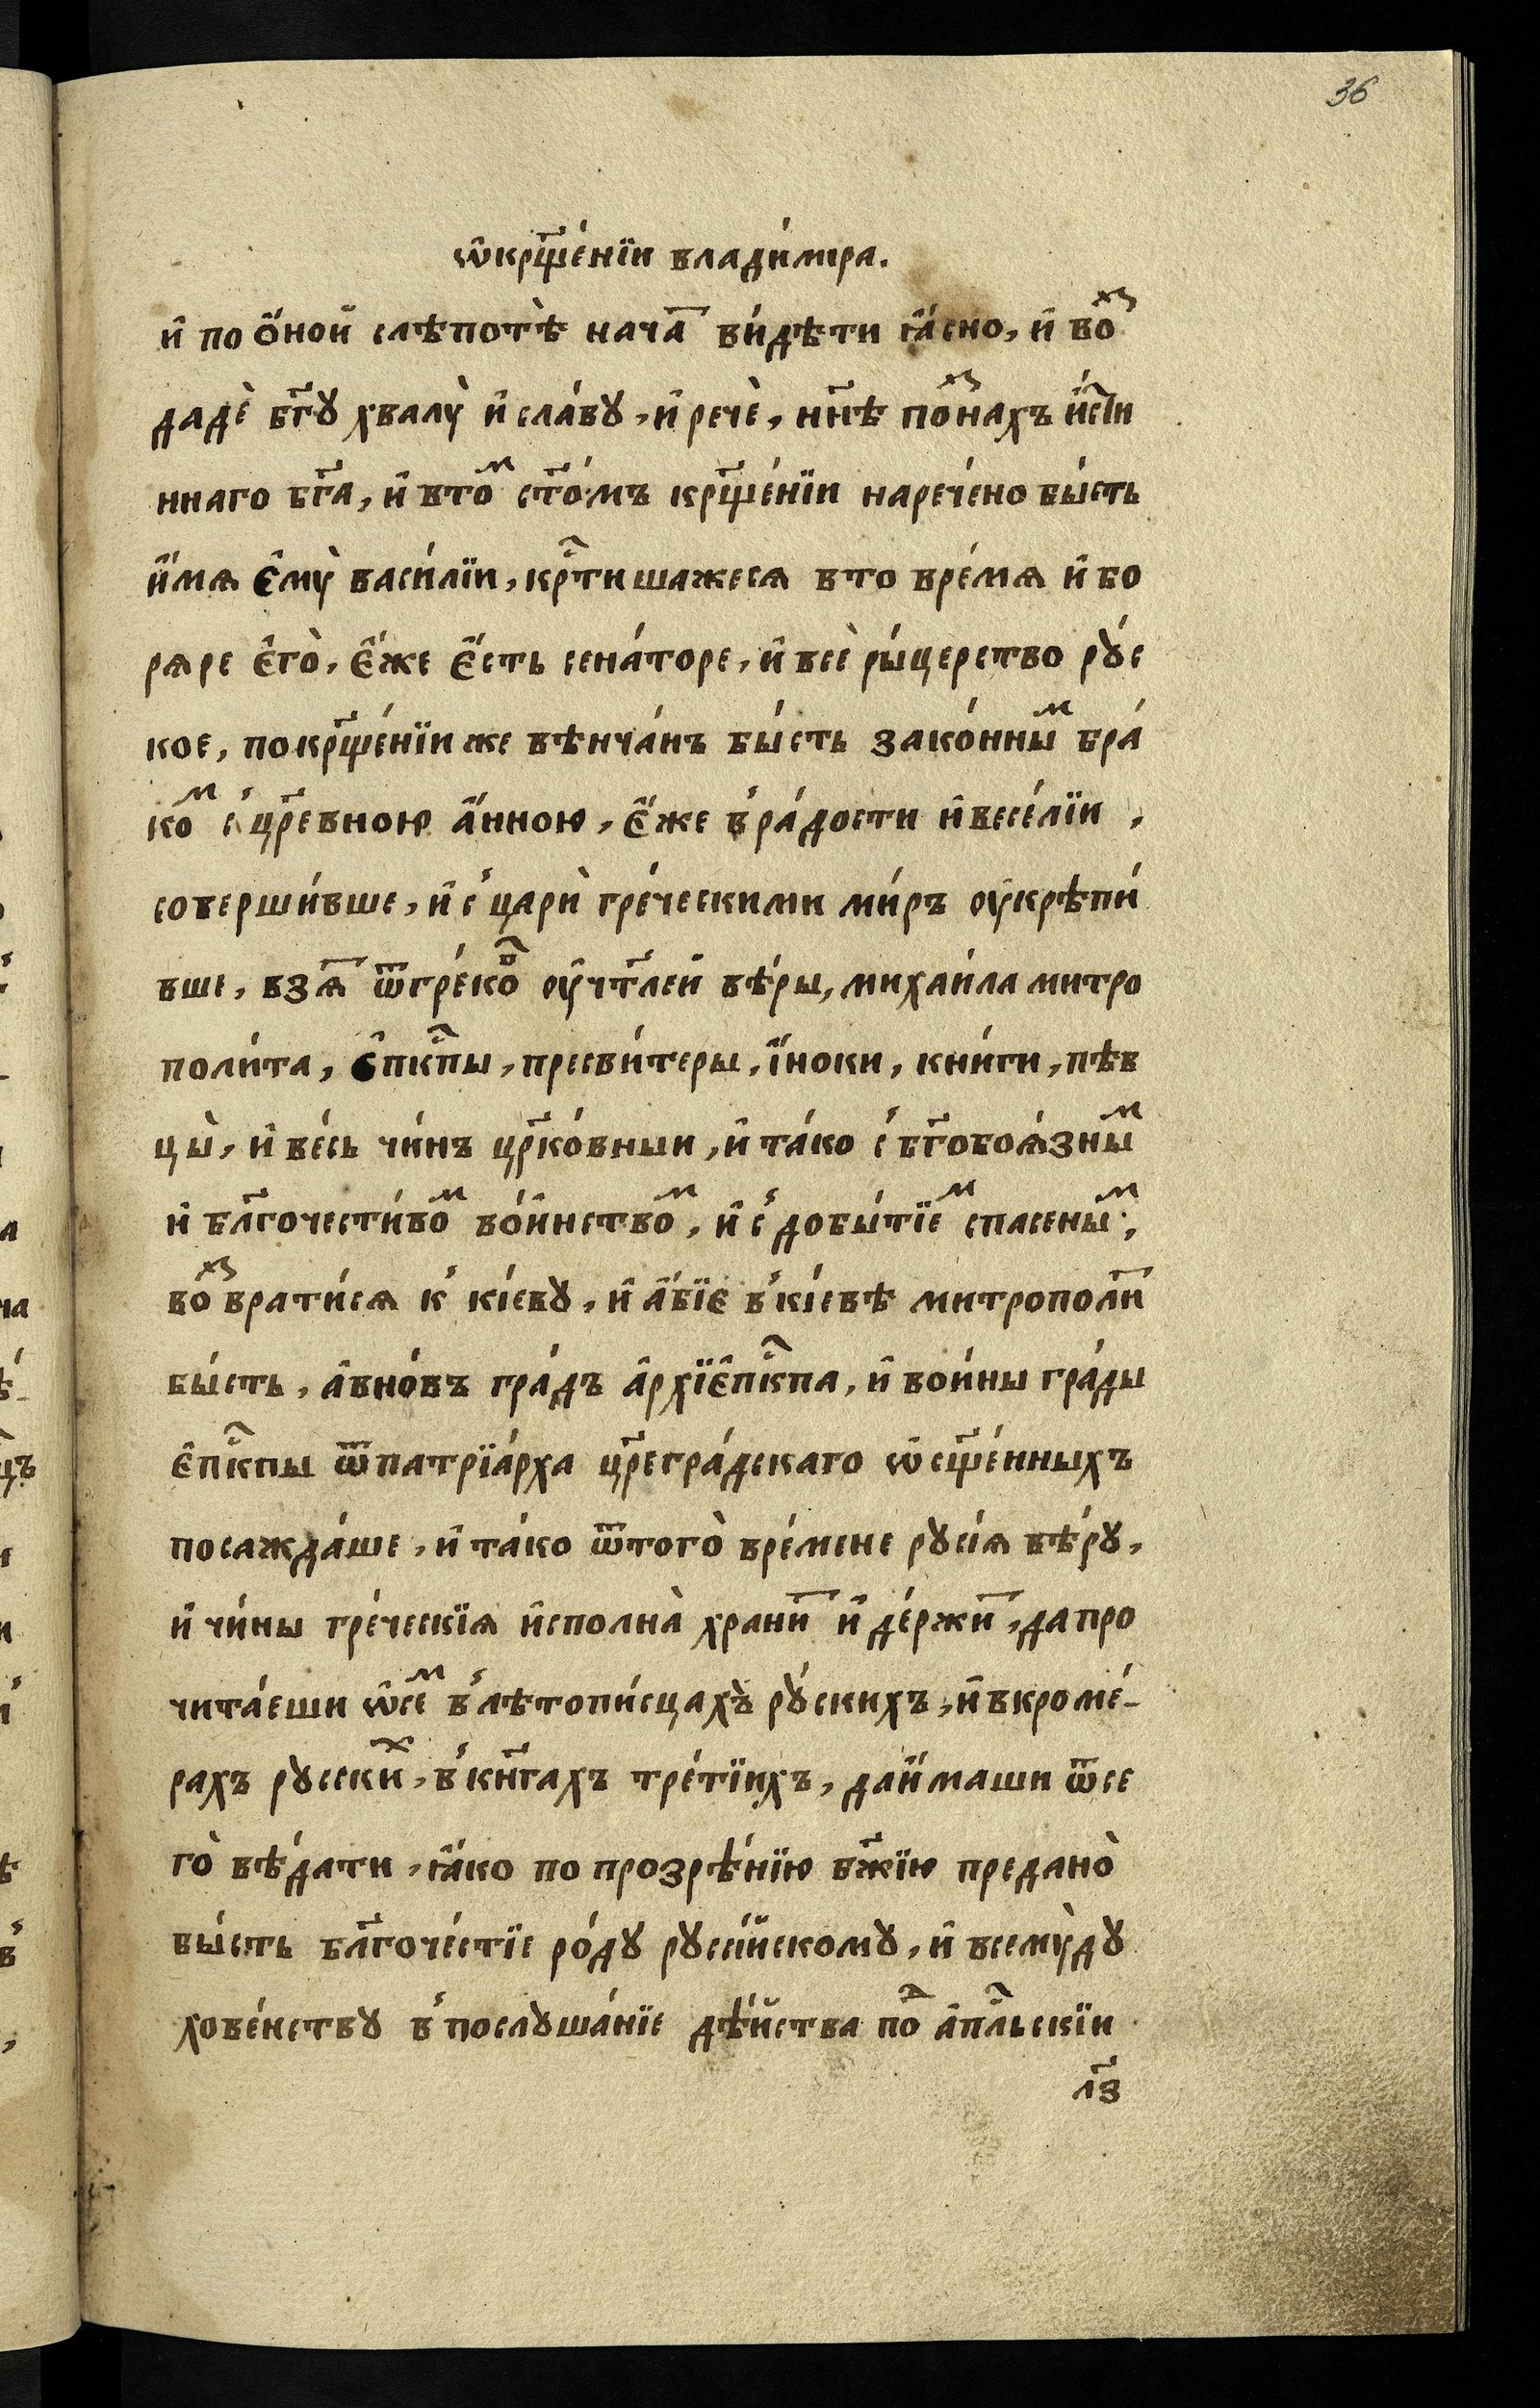 36
ѡ҆кр҃ще́нїи влади́мира.
и҆ по ѻ҆́ной слѣпотѣ̀ нача̀ ви́дѣти ꙗ҆́сно, и҆ воⷥ
дадѐ бг҃ꙋ хвалꙋ̀ и҆ сла́вꙋ, и҆ речѐ, нн҃ѣ поⷥнахъ и҆́стⷩ҇и
ннаго бг҃а, и҆ втоⷨ ст҃о́мъ кр҃ще́нїи нарече́но бы́сть
и҆́мѧ є҆мꙋ̀ васи́лїи, крⷭ҇тишажесѧ вто вре́мѧ и҆ бо
рѧре є҆го̀, є҆́же є҆́сть сена́торе, и҆ всѐ ры́церство рꙋ́с
кое, покр҃ще́нїи же вѣнча́нъ бы́сть зако́нныⷨ бра́
коⷨ с̾ цр҃евною а҆́нною, є҆́же в̾ ра́дости и҆ весе́лїи,
соверши́вше, и҆ с̾ царѝ гре́ческими ми́ръ оу҆крѣпи́
вше, взѧ̀ ѿгре́коⷡ҇ оу҆чт҃лей вѣ́ры, михаи́ла митро
поли́та, є҆пкⷭ҇пы, пресви́теры, і҆́ноки, кни́ги, пѣв
цы̀, и҆ ве́сь чи́нъ цр҃ко́вныи, и҆ та́ко с̾ бг҃обоѧ́зныⷨ
и҆ бл҃гочести́воⷨ во́инствоⷨ, и҆ с̾ добы́тїеⷨ спасеныⷨ,
воⷥврати́сѧ к̾ кі́евꙋ, и҆ а҆́бїе в̾ кі́евѣ митрополи́
бы́сть, а҆вно́въ гра́дъ а҆рхїє҆пкⷭ҇па, и҆ во и́ны гра́ды
є҆пкⷭ҇пы ѿпатрїа́рха цр҃егра́дскаго ѡ҆сщ҃е́нныхъ
посажда́ше, и҆ та́ко ѿтого̀ вре́мене рꙋсі́ѧ вѣ́рꙋ,
и҆ чи́ны гре́ческїѧ и҆сполна̀ храни́ и҆ де́ржи, да про
чита́еши ѡ҆сеⷨ в̾ лѣтопи́сцахъ рꙋ́скихъ, и҆ вкроме́-
рахъ рꙋсскиⷯ, в̾ кн҃гахъ тре́тїихъ, да и҆́маши ѿсе
го̀ вѣ́дати, ꙗ҆́ко по прозрѣ́нїю бж҃їю предано̀
бы́сть бл҃гоче́стїе ро́дꙋ рꙋсі́йскомꙋ, и҆ всемꙋ̀ дꙋ
хове́нствꙋ в̾ послꙋша́нїе дѣ́йства поⷣ а҆пⷭ҇льскїи
л҃з